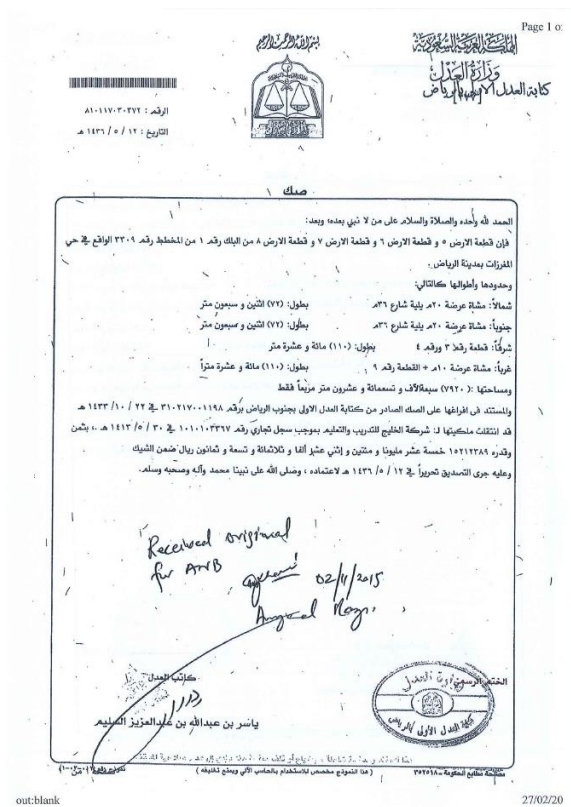 Page 1 o
بسم الله الرحمن الرحيم
المملكة العربية السعودية
وزارة العدل
كتابة العدل الأولى بالرياض
الرقم : ٨١٠١١٧٠٣٠٣٧٢
التاريخ : ١٢ / ٥ / ١٤٣٦ هـ
وزارة العدل
صك
الحمد لله وحده والصلاة والسلام على من لا نبي بعده، وبعد:
فإن قطعة الارض ٥ و قطعة الارض ٦ و قطعة الارض ٧ و قطعة الارض ٨ من البلك رقم ١ من المخطط رقم ٣٣٠٩ الواقع في حي
المغرزات بمدينة الرياض .
وحدودها وأطوالها كالتالي:
شمالاً: مشاة عرضة ٢٠م يلية شارع ٣٦م بطول: (٧٢) اثنين و سبعون متر
جنوباً: مشاة عرضة ٢٠م يلية شارع ٣٦م بطول: (٧٢) اثنين و سبعون متر
شرقاً: قطعة رقم ٣ ورقم ٤ بطول: (١١٠) مائة و عشرة متر
غرباً: مشاة عرضة ١٠م + القطعة رقم ٩ بطول: (١١٠) مائة و عشرة متراً
ومساحتها : (٧٩٢٠) سبعة آلاف و تسعمائة و عشرون متر مربعاً فقط
والمستند في افراغها على الصك الصادر من كتابة العدل الاولى بجنوب الرياض برقم ٣١٠٢١٧٠٠١١٩٨ في ٢٢ / ١٠ / ١٤٣٣ هـ
قد انتقلت ملكيتها لـ: شركة الخليج للتدريب والتعليم بموجب سجل تجاري رقم ١٠١٠١٠٣٣٦٧ في ٣٠ / ٥ / ١٤١٣ هـ ، بثمن
وقدره ١٥٢١٢٣٨٩ خمسة عشر مليونا و مئتين و إثني عشر ألفا و ثلاثمائة و تسعة و ثمانون ريال ضمن الشيك
وعليه جرى التصديق تحريراً في ١٢ / ٥ / ١٤٣٦ هـ لاعتماده ، وصلى الله على نبينا محمد وآله وصحبه وسلم.
Received original
for ANB
02/11/2015
كاتب العدل
الختم الرسمي
وزارة العدل
كتابة العدل الأولى بالرياض
ياسر بن عبدالله بن عبدالعزيز السليم
مصلحة مطابع الحكومة - ٣٥٢٥١٨
( هذا النموذج مخصص للاستخدام بالحاسب الآلي ويمنع تغليفه )
out:blank
27/02/20